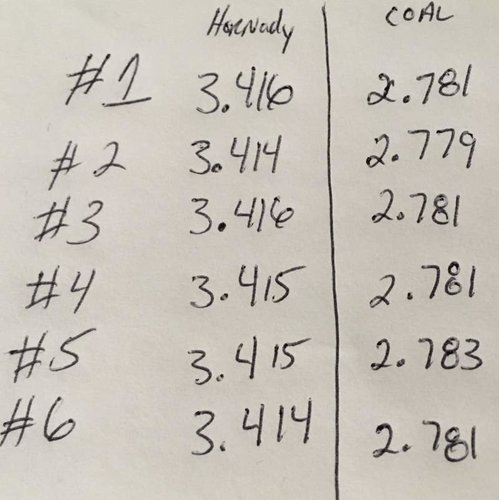 Hornady COAL
#1 3.416 2.781
#2 3.414 2.779
#3 3.416 2.781
#4 3.415 2.781
#5 3.415 2.783
#6 3.414 2.781